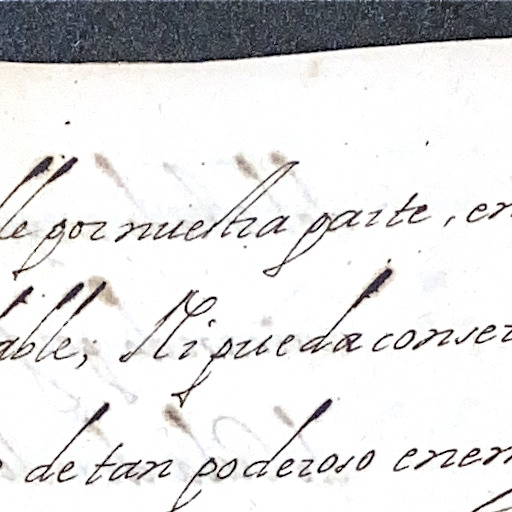 ble por nuestra parte, en
able; Ni pueda conser
de tan poderoso enem